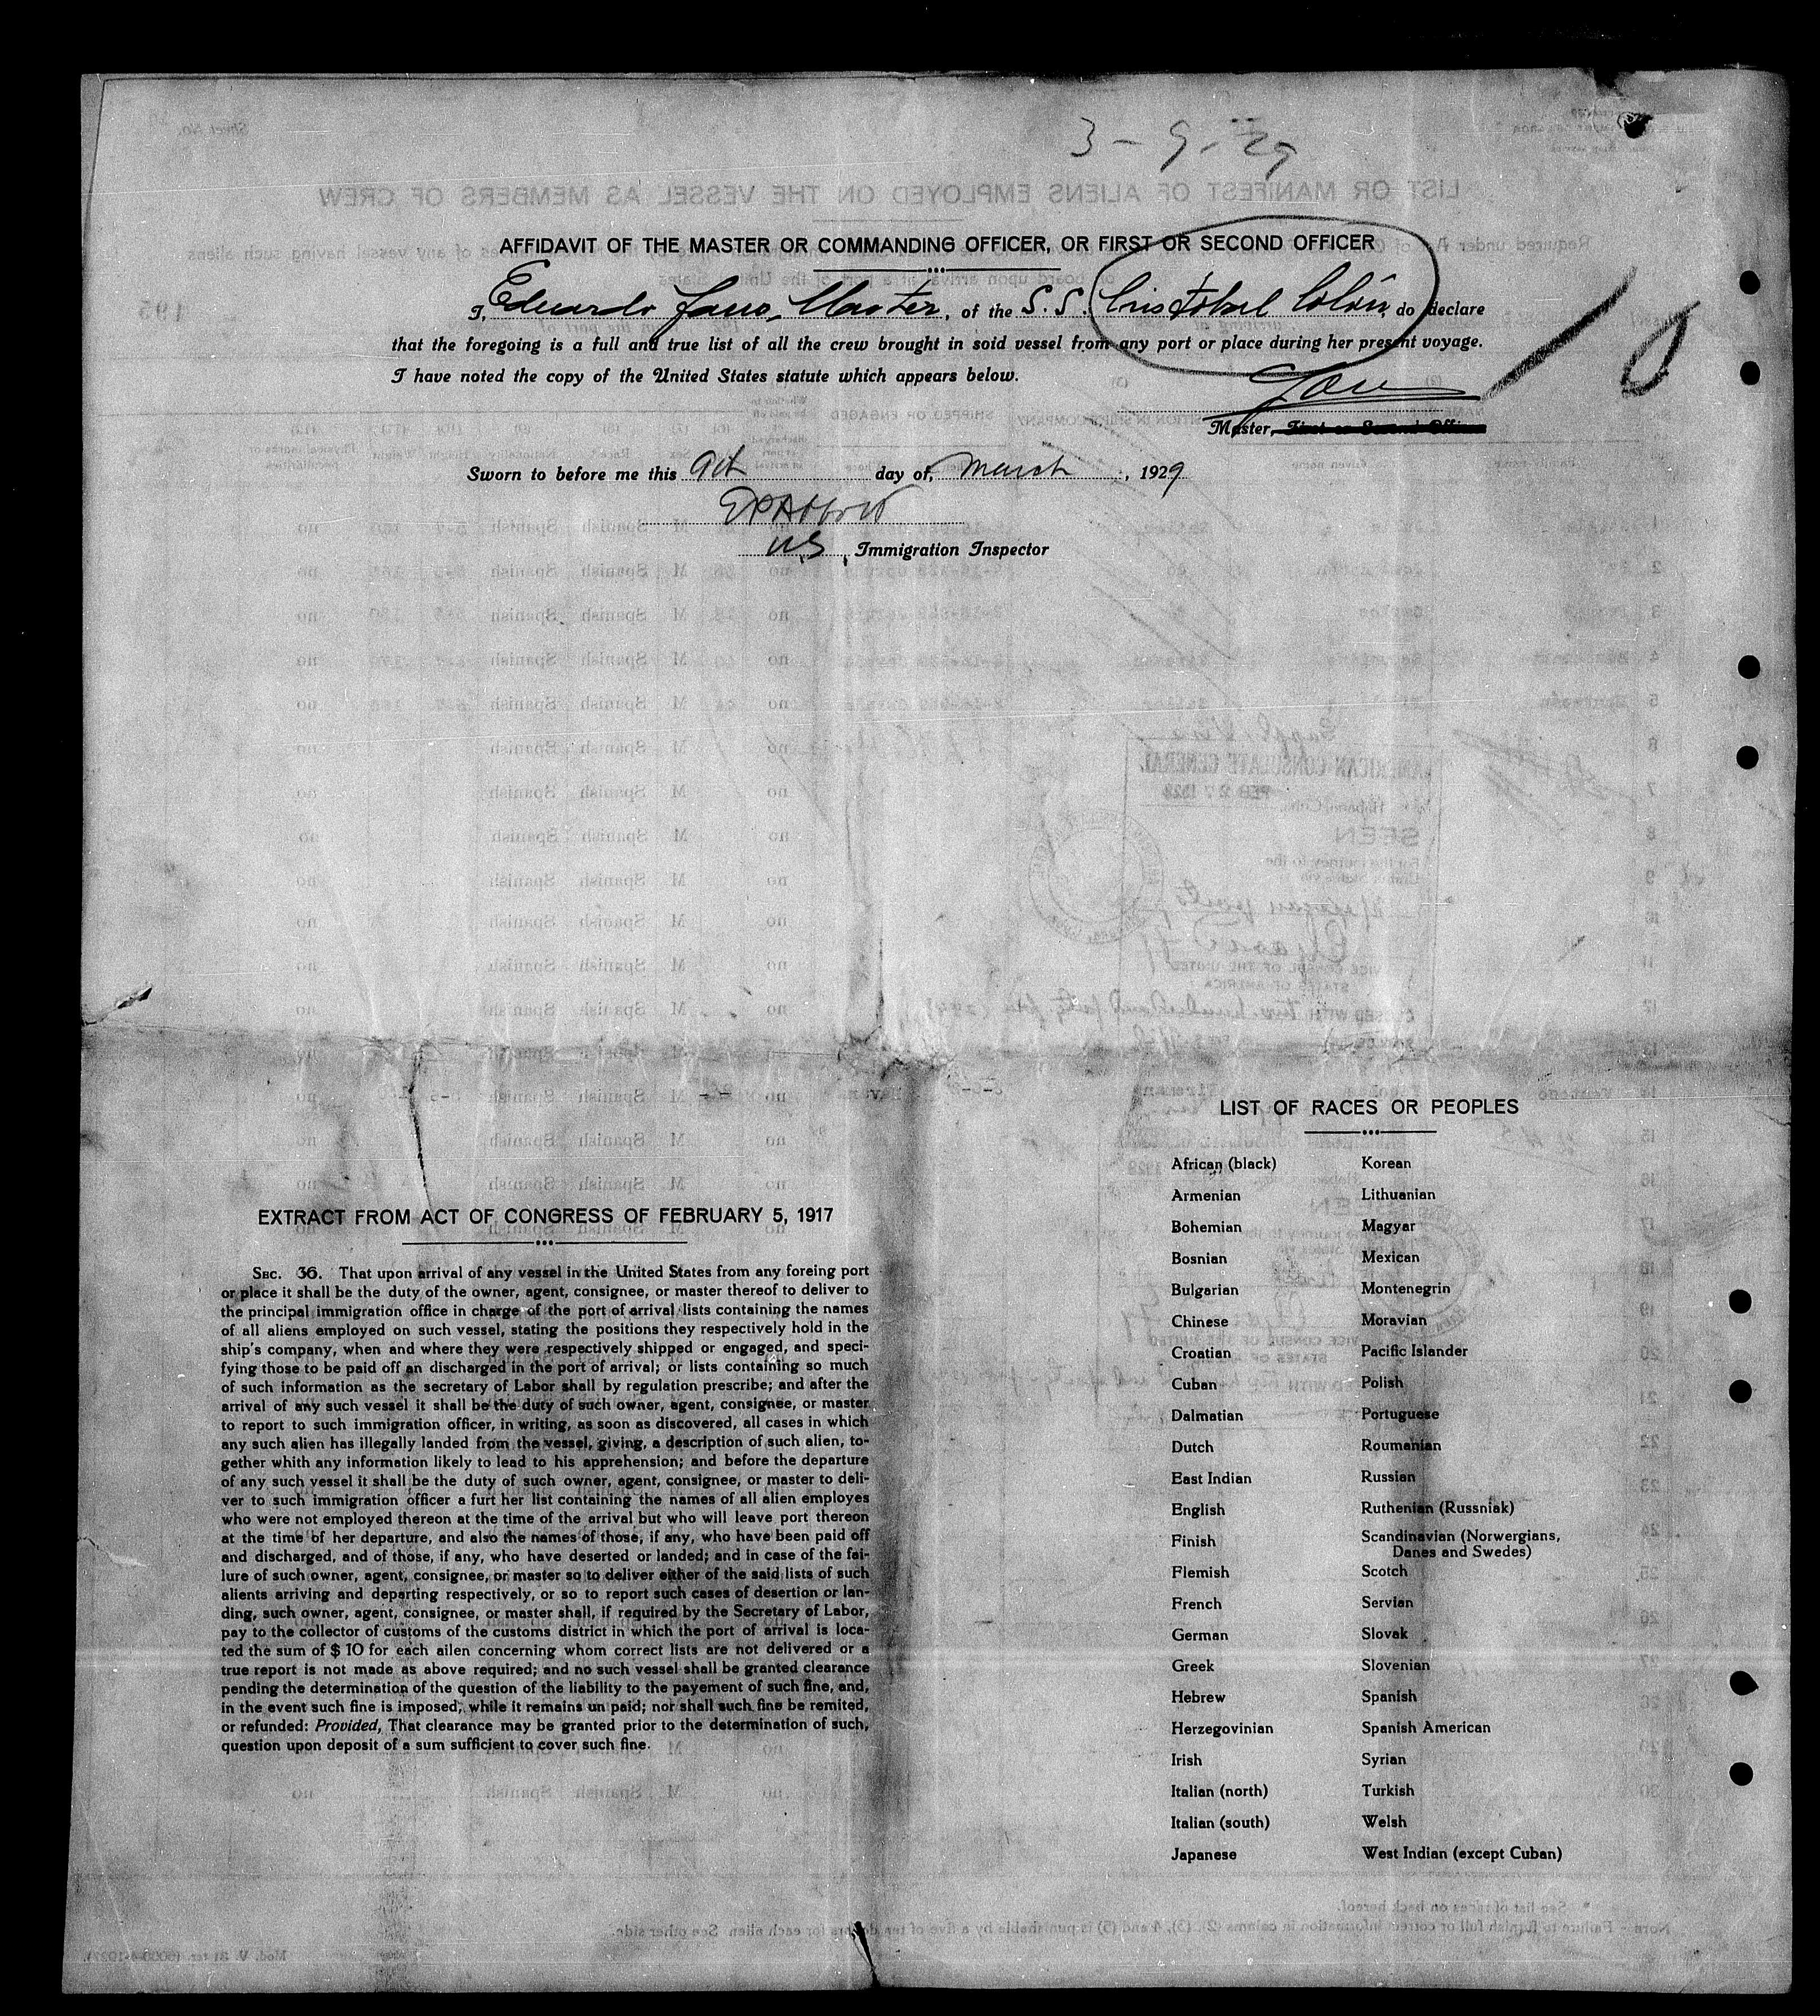 3 - 9 - 29
AFFIDAVIT OF THE MASTER OR COMMANDING OFFICER, OR FIRST OR SECOND OFFICER
I, Eduardo Fano, Master, of the S.S. Cristobal Colón, do declare
that the foregoing is a full and true list of all the crew brought in soid vessel from any port or place during her present voyage.
I have noted the copy of the United States statute which appears below.
Master, First or Second Officer
Sworn to before me this 9th day of, March, 1929
US, Immigration Inspector
EXTRACT FROM ACT OF CONGRESS OF FEBRUARY 5, 1917
SEC. 36. That upon arrival of any vessel in the United States from any foreing port
or place it shall be the duty of the owner, agent, consignee, or master thereof to deliver to
the principal immigration office in charge of the port of arrival lists containing the names
of all aliens employed on such vessel, stating the positions they respectively hold in the
ship's company, when and where they were respectively shipped or engaged, and speci-
fying those to be paid off an discharged in the port of arrival; or lists containing so much
of such information as the secretary of Labor shall by regulation prescribe; and after the
arrival of any such vessel it shall be the duty of such owner, agent, consignee, or master
to report to such immigration officer, in writing, as soon as discovered, all cases in which
any such alien has illegally landed from the vessel, giving, a description of such alien, to-
gether whith any information likely to lead to his apprehension; and before the departure
of any such vessel it shall be the duty of such owner, agent, consignee, or master to deli-
ver to such immigration officer a furt her list containing the names of all alien employes
who were not employed thereon at the time of the arrival but who will leave port thereon
at the time of her departure, and also the names of those, if any, who have been paid off
and discharged, and of those, if any, who have deserted or landed; and in case of the fai-
lure of such owner, agent, consignee, or master so to deliver either of the said lists of such
alients arriving and departing respectively, or so to report such cases of desertion or lan-
ding, such owner, agent, consignee, or master shall, if required by the Secretary of Labor,
pay to the collector of customs of the customs district in which the port of arrival is loca-
ted the sum of $ 10 for each ailen concerning whom correct lists are not delivered or a
true report is not made as above required; and no such vessel shall be granted clearance
pending the determination of the question of the liability to the payement of such fine, and,
in the event such fine is imposed, while it remains un paid; nor shall such fine be remited,
or refunded: Provided, That clearance may be granted prior to the determination of such,
question upon deposit of a sum sufficient to cover such fine.
LIST OF RACES OR PEOPLES
African (black)
Armenian
Bohemian
Bosnian
Bulgarian
Chinese
Croatian
Cuban
Dalmatian
Dutch
East Indian
English
Finish
Flemish
French
German
Greek
Hebrew
Herzegovinian
Irish
Italian (north)
Italian (south)
Japanese
Korean
Lithuanian
Magyar
Mexican
Montenegrin
Moravian
Pacific Islander
Polish
Portuguese
Roumanian
Russian
Ruthenian (Russniak)
Scandinavian (Norwergians,
Danes and Swedes)
Scotch
Servian
Slovak
Slovenian
Spanish
Spanish American
Syrian
Turkish
Welsh
West Indian (except Cuban)